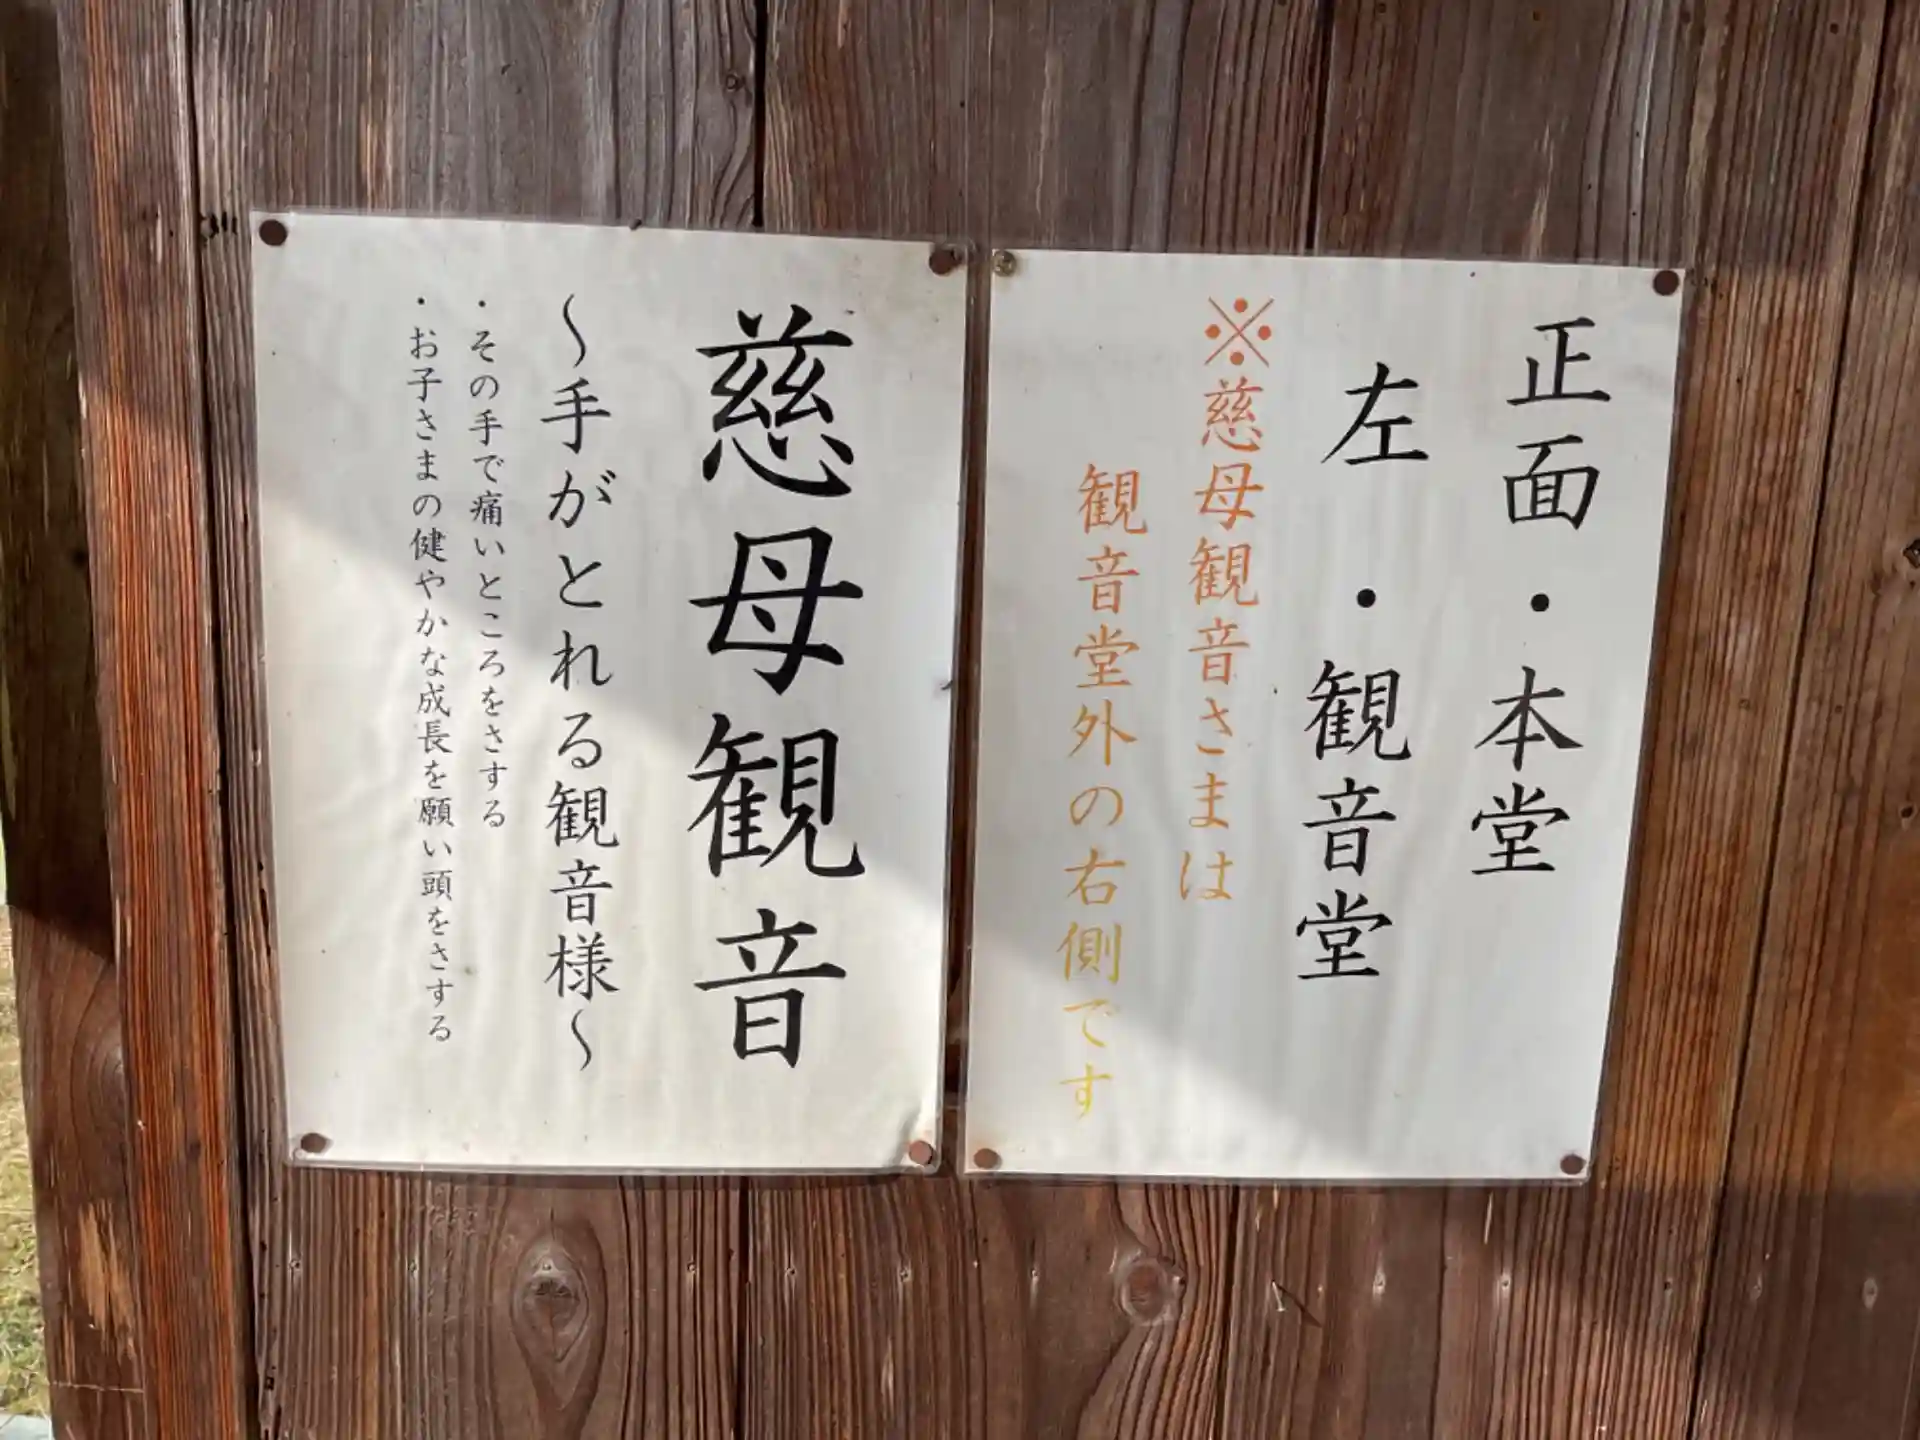 正面・本堂
左・観音堂
※慈母観音さまは
観音堂外の右側です
慈母観音
～手がとれる観音様～
・その手で痛いところをさする
・お子さまの健やかな成長を願い頭をさする